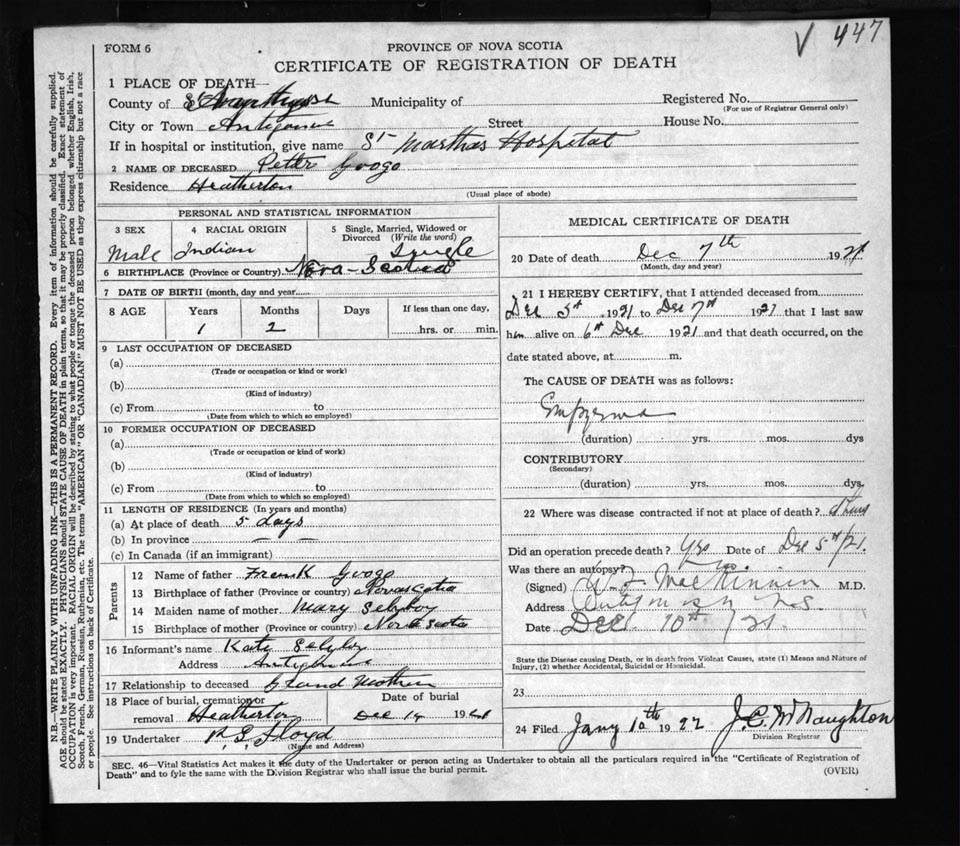 V 447
FORM 6
PROVINCE OF NOVA SCOTIA
CERTIFICATE OF REGISTRATION OF DEATH
1 PLACE OF DEATH—
County of Municipality of Registered No.
(For use of Registrar General only)
City or Town Antigonish Street House No.
If in hospital or institution, give name St Marthas Hospital
2 NAME OF DECEASED Peter Googo
Residence Heatherton
(Usual place of abode)
PERSONAL AND STATISTICAL INFORMATION
3 SEX 4 RACIAL ORIGIN 5 Single, Married, Widowed or Divorced (Write the word)
Male Indian Single
6 BIRTHPLACE (Province or Country) Nova-Scotia
7 DATE OF BIRTH (month, day and year)
8 AGE Years Months Days If less than one day,
1 2 hrs. or min.
9 LAST OCCUPATION OF DECEASED
(a)
(Trade or occupation or kind or work)
(b)
(Kind of industry)
(c) From to
(Date from which to which so employed)
10 FORMER OCCUPATION OF DECEASED
(a)
(Trade or occupation or kind of work)
(b)
(Kind of industry)
(c) From to
(Date from which to which so employed)
11 LENGTH OF RESIDENCE (In years and months)
(a) At place of death 5 days
(b) In province — —
(c) In Canada (if an immigrant)
Parents
12 Name of father Frank Googo
13 Birthplace of father (Province or country) Nova Scotia
14 Maiden name of mother Mary
15 Birthplace of mother (Province or country) Nova Scotia
16 Informant's name Kate
Address Antigonish
17 Relationship to deceased Grand Mother
18 Place of burial, cremation or removal Heatherton
Date of burial
Dec 14 1921
19 Undertaker Floyd
(Name and Address)
MEDICAL CERTIFICATE OF DEATH
20 Date of death Dec 7th 1921
(Month, day and year)
21 I HEREBY CERTIFY, that I attended deceased from
Dec 5th 1921 to Dec 7th 1921 that I last saw
him alive on 6th Dec 1921 and that death occurred, on the
date stated above, at m.
The CAUSE OF DEATH was as follows:
Empyema
(duration) yrs. mos. dys
CONTRIBUTORY
(Secondary)
(duration) yrs. mos. dys.
22 Where was disease contracted if not at place of death?
Did an operation precede death? Yes Date of Dec 5th/21.
Was there an autopsy? No.
(Signed) MacKinnon M.D.
Address Antigonish N.S.
Date Dec 10th /21.
State the Disease causing Death, or in death from Violent Causes, state (1) Means and Nature of
Injury, (2) whether Accidental, Suicidal or Homicidal.
23
24 Filed Jany 10th 1922 J.C. McNaughton
Division Registrar
SEC. 46—Vital Statistics Act makes it the duty of the Undertaker or person acting as Undertaker to obtain all the particulars required in the "Certificate of Registration of
Death" and to fyle the same with the Division Registrar who shall issue the burial permit.
(OVER)
N.B.—WRITE PLAINLY WITH UNFADING INK—THIS IS A PERMANENT RECORD. Every item of information should be carefully supplied.
AGE should be stated EXACTLY. PHYSICIANS should STATE CAUSE OF DEATH in plain terms, so that it may be properly classified. Exact statement of
OCCUPATION is very important. RACIAL ORIGIN will be described by stating to what people or tongue the deceased person belonged whether English, Irish,
Scotch, French, German, Russian, Ruthenian, etc. The terms "AMERICAN" OR "CANADIAN" MUST NOT BE USED as they express citizenship but not a race
or people. See instructions on back of Certificate.